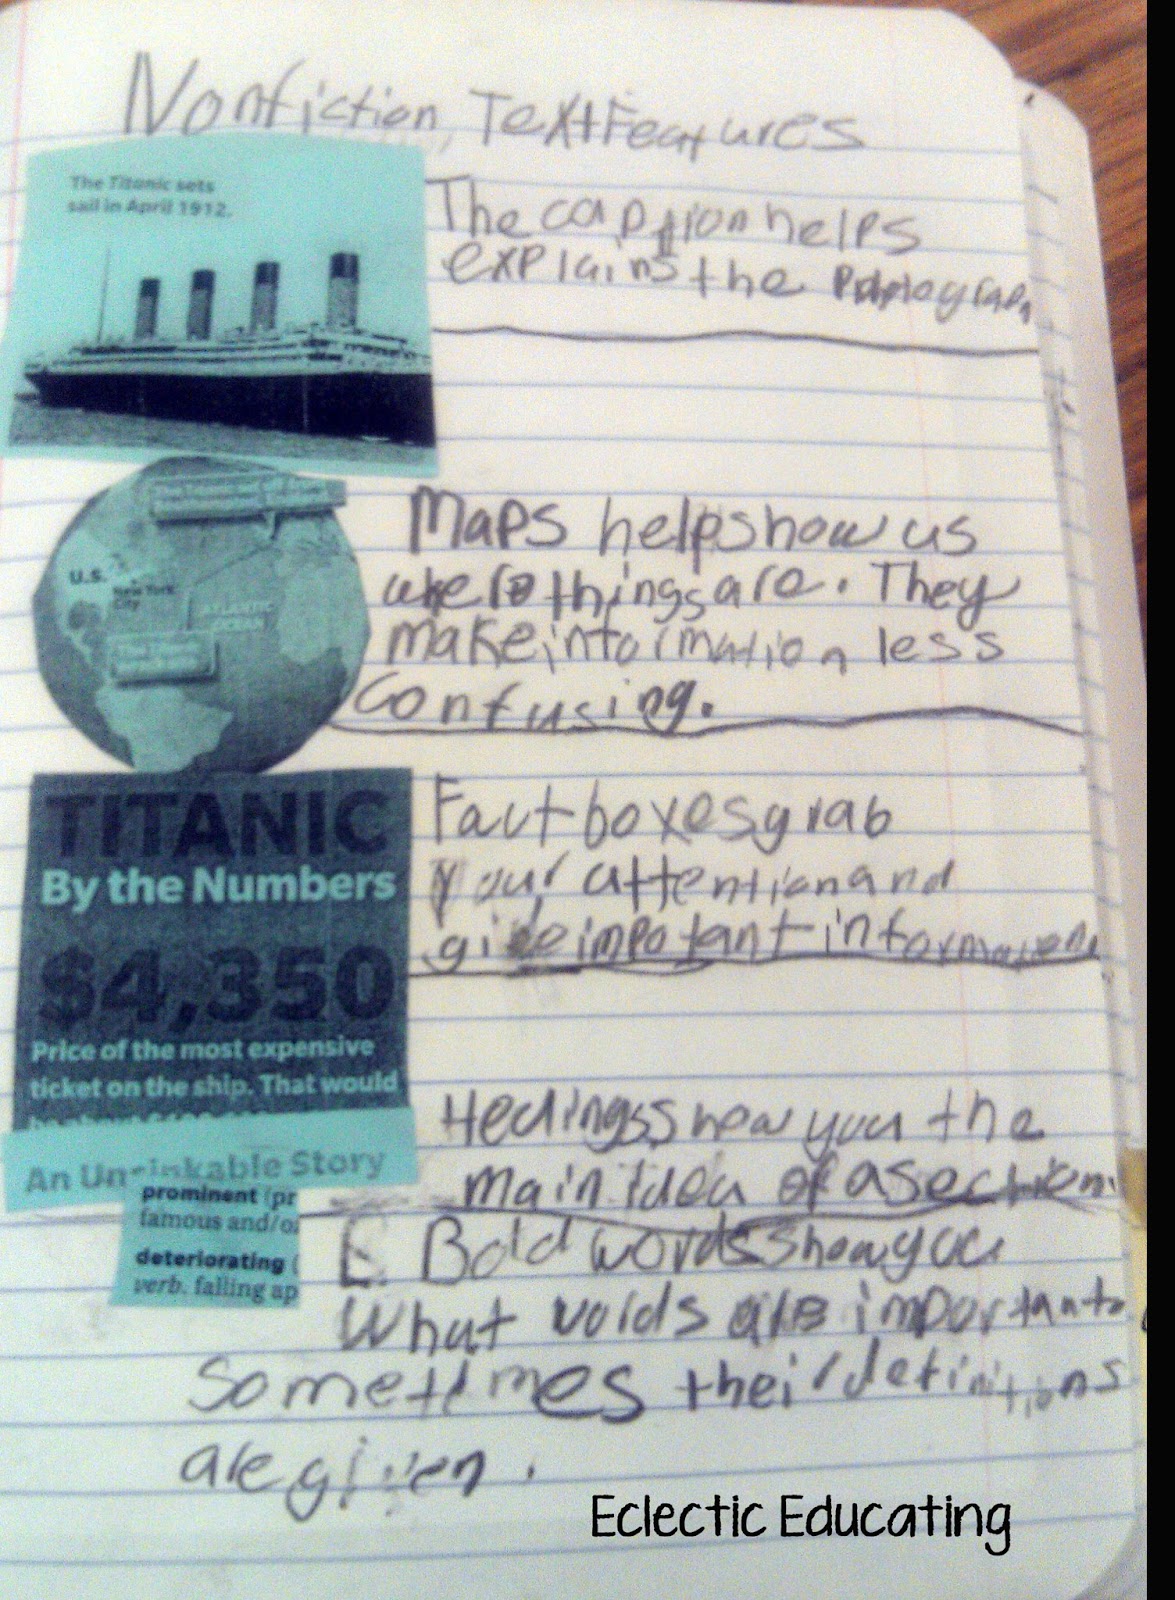 Nonfiction, Text Features
The Titanic sets
sail in April 1912.
The caption helps
explains the
U.S.
New York
City
ATLANTIC
OCEAN
Maps help show us
where things are. They
make information less
confusing.
TITANIC
By the Numbers
$4,350
Price of the most expensive
ticket on the ship. That would
Fact boxes grab
your attention and
give important information
An Unsinkable Story
Hedings show you the
main idea of a section.
prominent (pr
famous and/o
deteriorating (
verb. falling ap
Bold words show you
What words are important
Sometimes their definitions
are given.
Eclectic Educating